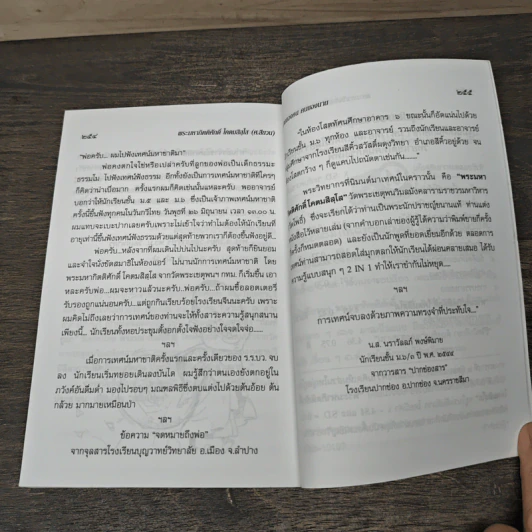 ๒๕๔ พระมหากิตติศักดิ์ โคตมสิสฺโส (ห.สีขวน)
"พ่อครับ... ผมไปฟังเทศน์มหาชาติมา"
พ่อคงตกใจใช่หรือเปล่าครับที่ลูกของพ่อเป็นเด็กธรรมะ
ธรรมโม ไปฟังเทศน์ฟังธรรม อีกทั้งยังเป็นการเทศน์มหาชาติที่ใครๆ
ก็คิดว่าน่าเบื่อมาก ครั้งแรกผมก็คิดเช่นนั้นแหละครับ พออาจารย์
บอกว่าให้นักเรียนชั้น ม.๕ และ ม.๖ ซึ่งเป็นเจ้าภาพเทศน์มหาชาติ
ครั้งนี้ขึ้นฟังทุกคนในวันกวีไทย วันพุธที่ ๒๖ มิถุนายน เวลา ๑๓.๐๐ น.
ผมแทบจะเบะปากเลยครับเพราะไม่เข้าใจว่าทำไมต้องให้นักเรียนที่
อายุเท่านี้ขึ้นฟังเทศน์ฟังธรรมด้วยแต่สุดท้ายพวกเราก็ต้องขึ้นฟังอยู่ดี...
พ่อครับ...หลังจากที่ผมเดินไปบ่นไปนะครับ สุดท้ายก็ยินยอม
และจำใจนั่งขัดสมาธิในห้องแอร์ ไม่นานนักการเทศน์มหาชาติ โดย
พระมหากิตติศักดิ์ โคตมสิสฺโส จากวัดพระเชตุพนฯ กทม. ก็เริ่มขึ้น เอา
หละครับพ่อ...ผมจะหาวแล้วนะครับ..พ่อครับ...ถ้าผมซื้อลอตเตอรี่
รับรองถูกแน่นอนครับ...แต่ถูกกินเรียบร้อยโรงเรียนจีนนะครับ เพราะ
ผมคิดไม่ถึงเลยว่าการเทศน์ของท่านจะให้ทั้งสาระความรู้สนุกสนาน
เพียงนี้... นักเรียนทั้งหอประชุมตั้งอกตั้งใจฟังอย่างใจจดใจจ่อ.....
ฯลฯ
เมื่อการเทศน์มหาชาติครั้งแรกและครั้งเดียวของ ร.ร.บ.ว. จบ
ลง นักเรียนเริ่มทยอยเดินลงบันได ผมรู้สึกว่าตนเองยังตกอยู่ใน
ภวังค์อันดื่มด่ำ มองไปรอบๆ มณฑลพิธีซึ่งตบแต่งไปด้วยต้นอ้อย ต้น
กล้วย มากมายเหมือนป่า
ฯลฯ
ข้อความ "จดหมายถึงพ่อ"
จากจุลสารโรงเรียนบุญวาทย์วิทยาลัย อ.เมือง จ.ลำปาง
๒๕๕
"ในห้องโสตทัศนศึกษาอาคาร ๖ ขณะนั้นก็อัดแน่นไปด้วย
ชั้น ม.๖ ทุกห้อง และอาจารย์ รวมถึงนักเรียนและอาจารย์
จากโรงเรียนสีคิ้วสวัสดิ์ผดุงวิทยา อำเภอสีคิ้วอยู่ด้วย จน
กว้าง ๆ ก็ดูแคบไปถนัดตาเช่นกัน......"
พระวิทยากรที่นิมนต์มาเทศน์ในคราวนั้น คือ "พระมหา
กิตติศักดิ์ โคตมสิสฺโส" วัดพระเชตุพนวิมลมังคลารามราชวรมหาวิหาร
ซึ่งจะเรียกได้ว่าท่านเป็นพระนักปราชญ์ขนานแท้ ท่านแต่ง
หนังสือไว้หลายเล่ม (จากคำบอกเล่าของผู้รู้ได้ความว่าพิมพ์ขายกี่ครั้ง
ครั้งก็หมดตลอด) และยังเป็นนักพูดที่ยอดเยี่ยมอีกด้วย ตลอดการ
เทศน์ท่านสามารถสอดใส่มุกตลกให้นักเรียนได้ผ่อนคลายเสมอ ได้รับ
ความรู้แบบสนุก ๆ 2 IN 1 ทำให้เราขำกันไม่หยุด....
ฯลฯ
การเทศน์จบลงด้วยภาพความทรงจำที่ประทับใจ..."
น.ส. นราวัลลภ์ พงษ์พิมาย
นักเรียนชั้น ม.๖/๑ ปี พ.ศ. ๒๕๔๔
จากวารสาร "ปากช่องสาร"
โรงเรียนปากช่อง อ.ปากช่อง จ.นครราชสีมา